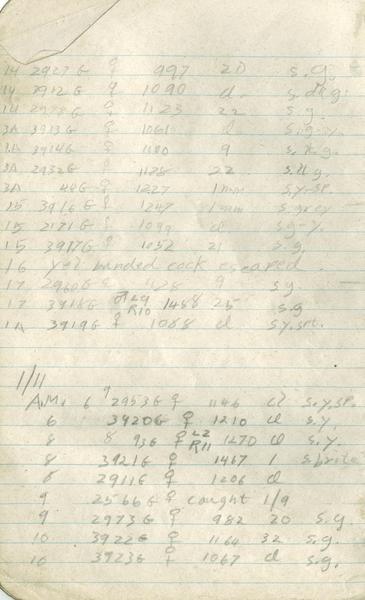 14 2927G ♀ 997 20 s.g.
14 3912G ♀ 1090 cl s.dk.g.
14 2978G ♀ 1123 22 s.g.
3A 3913G ♀ 1061 cl s.g-y.
3A 3914G ♀ 1180 9 s.k.g.
3A 2932G ♀ 1128 22 s.dk.g.
3A 44G ♀ 1227 1mm s.y.sp.
15 3916G ♀ 1247 1mm s.grey
15 2171G ♀ 1099 cl s.g-y.
15 3917G ♀ 1052 21 s.g.
16 yel banded cock escaped.
17 2960G ♀ 1128 9 s.g.
17 3918G ♂ L9 R10 1488 25 s.g
1A 3919G ♀ 1068 cl s.y.spt.
1/11
A.M. 6 2953G ♀ 1146 cl s.y.sp.
6 3920G ♀ 1210 cl s.y.
8 936 ♀ L2 R11 1270 cl s.y.
8 3921G ♀ 1467 1
8 2911G ♀ 1206 cl
9 2566G ♀ caught 1/9
9 2973G ♀ 982 20 s.g.
10 3922G ♀ 1164 32 s.g.
10 3923G ♀ 1067 cl s.g.